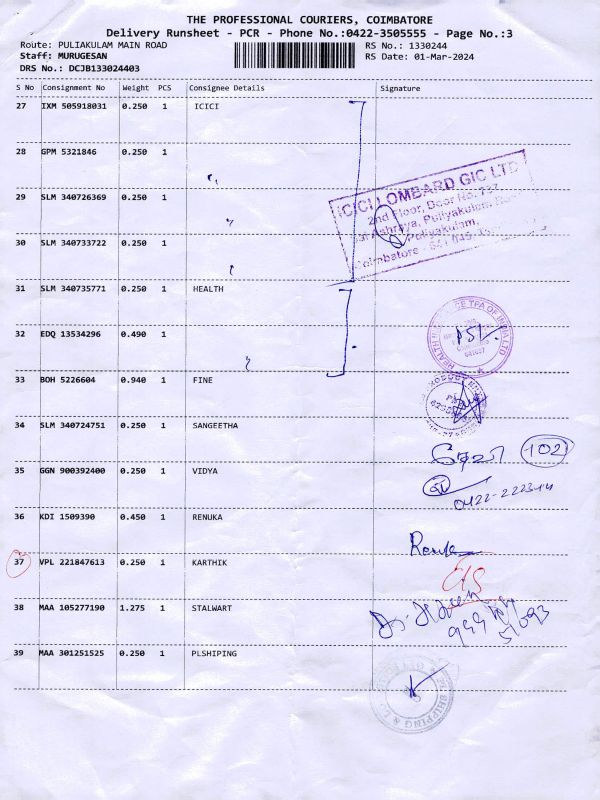 THE PROFESSIONAL COURIERS, COIMBATORE
Delivery Runsheet - PCR - Phone No.:0422-3505555 - Page No.:3
Route: PULIAKULAM MAIN ROAD RS No.: 1330244
Staff: MURUGESAN RS Date: 01-Mar-2024
DRS No.: DCJB133024403
S No Consignment No Weight PCS Consignee Details Signature
27 IXM 505918031 0.250 1 ICICI
28 GPM 5321846 0.250 1
29 SLM 340726369 0.250 1
ICICI LOMBARD GIC LTD
2nd Floor, Door No. 737
Puliyakulam
Puliyakulam,
Coimbatore
30 SLM 340733722 0.250 1
31 SLM 340735771 0.250 1 HEALTH
32 EDQ 13534296 0.490 1
TPA OF INDIA LTD
33 BOH 5226604 0.940 1 FINE
34 SLM 340724751 0.250 1 SANGEETHA
102
35 GGN 900392400 0.250 1 VIDYA
36 KDI 1509390 0.450 1 RENUKA
Renuka
37 VPL 221847613 0.250 1 KARTHIK
38 MAA 105277190 1.275 1 STALWART
39 MAA 301251525 0.250 1 PLSHIPING
SHIPPING &